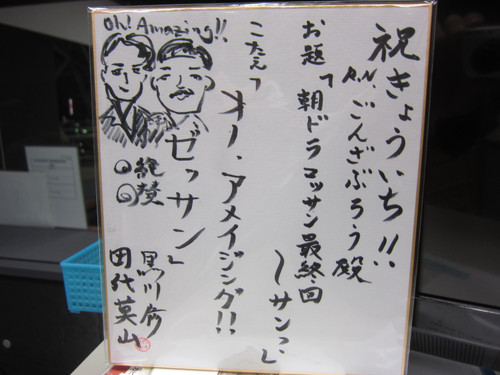 祝きょういち!!
R.N.ごんざぶろう殿
お題「朝ドラマッサン最終回
〜サン」
こたえ「オー、アメイジング!!
ゼッサン」
Oh! Amazing!!
絶賛
黒川
田代英山